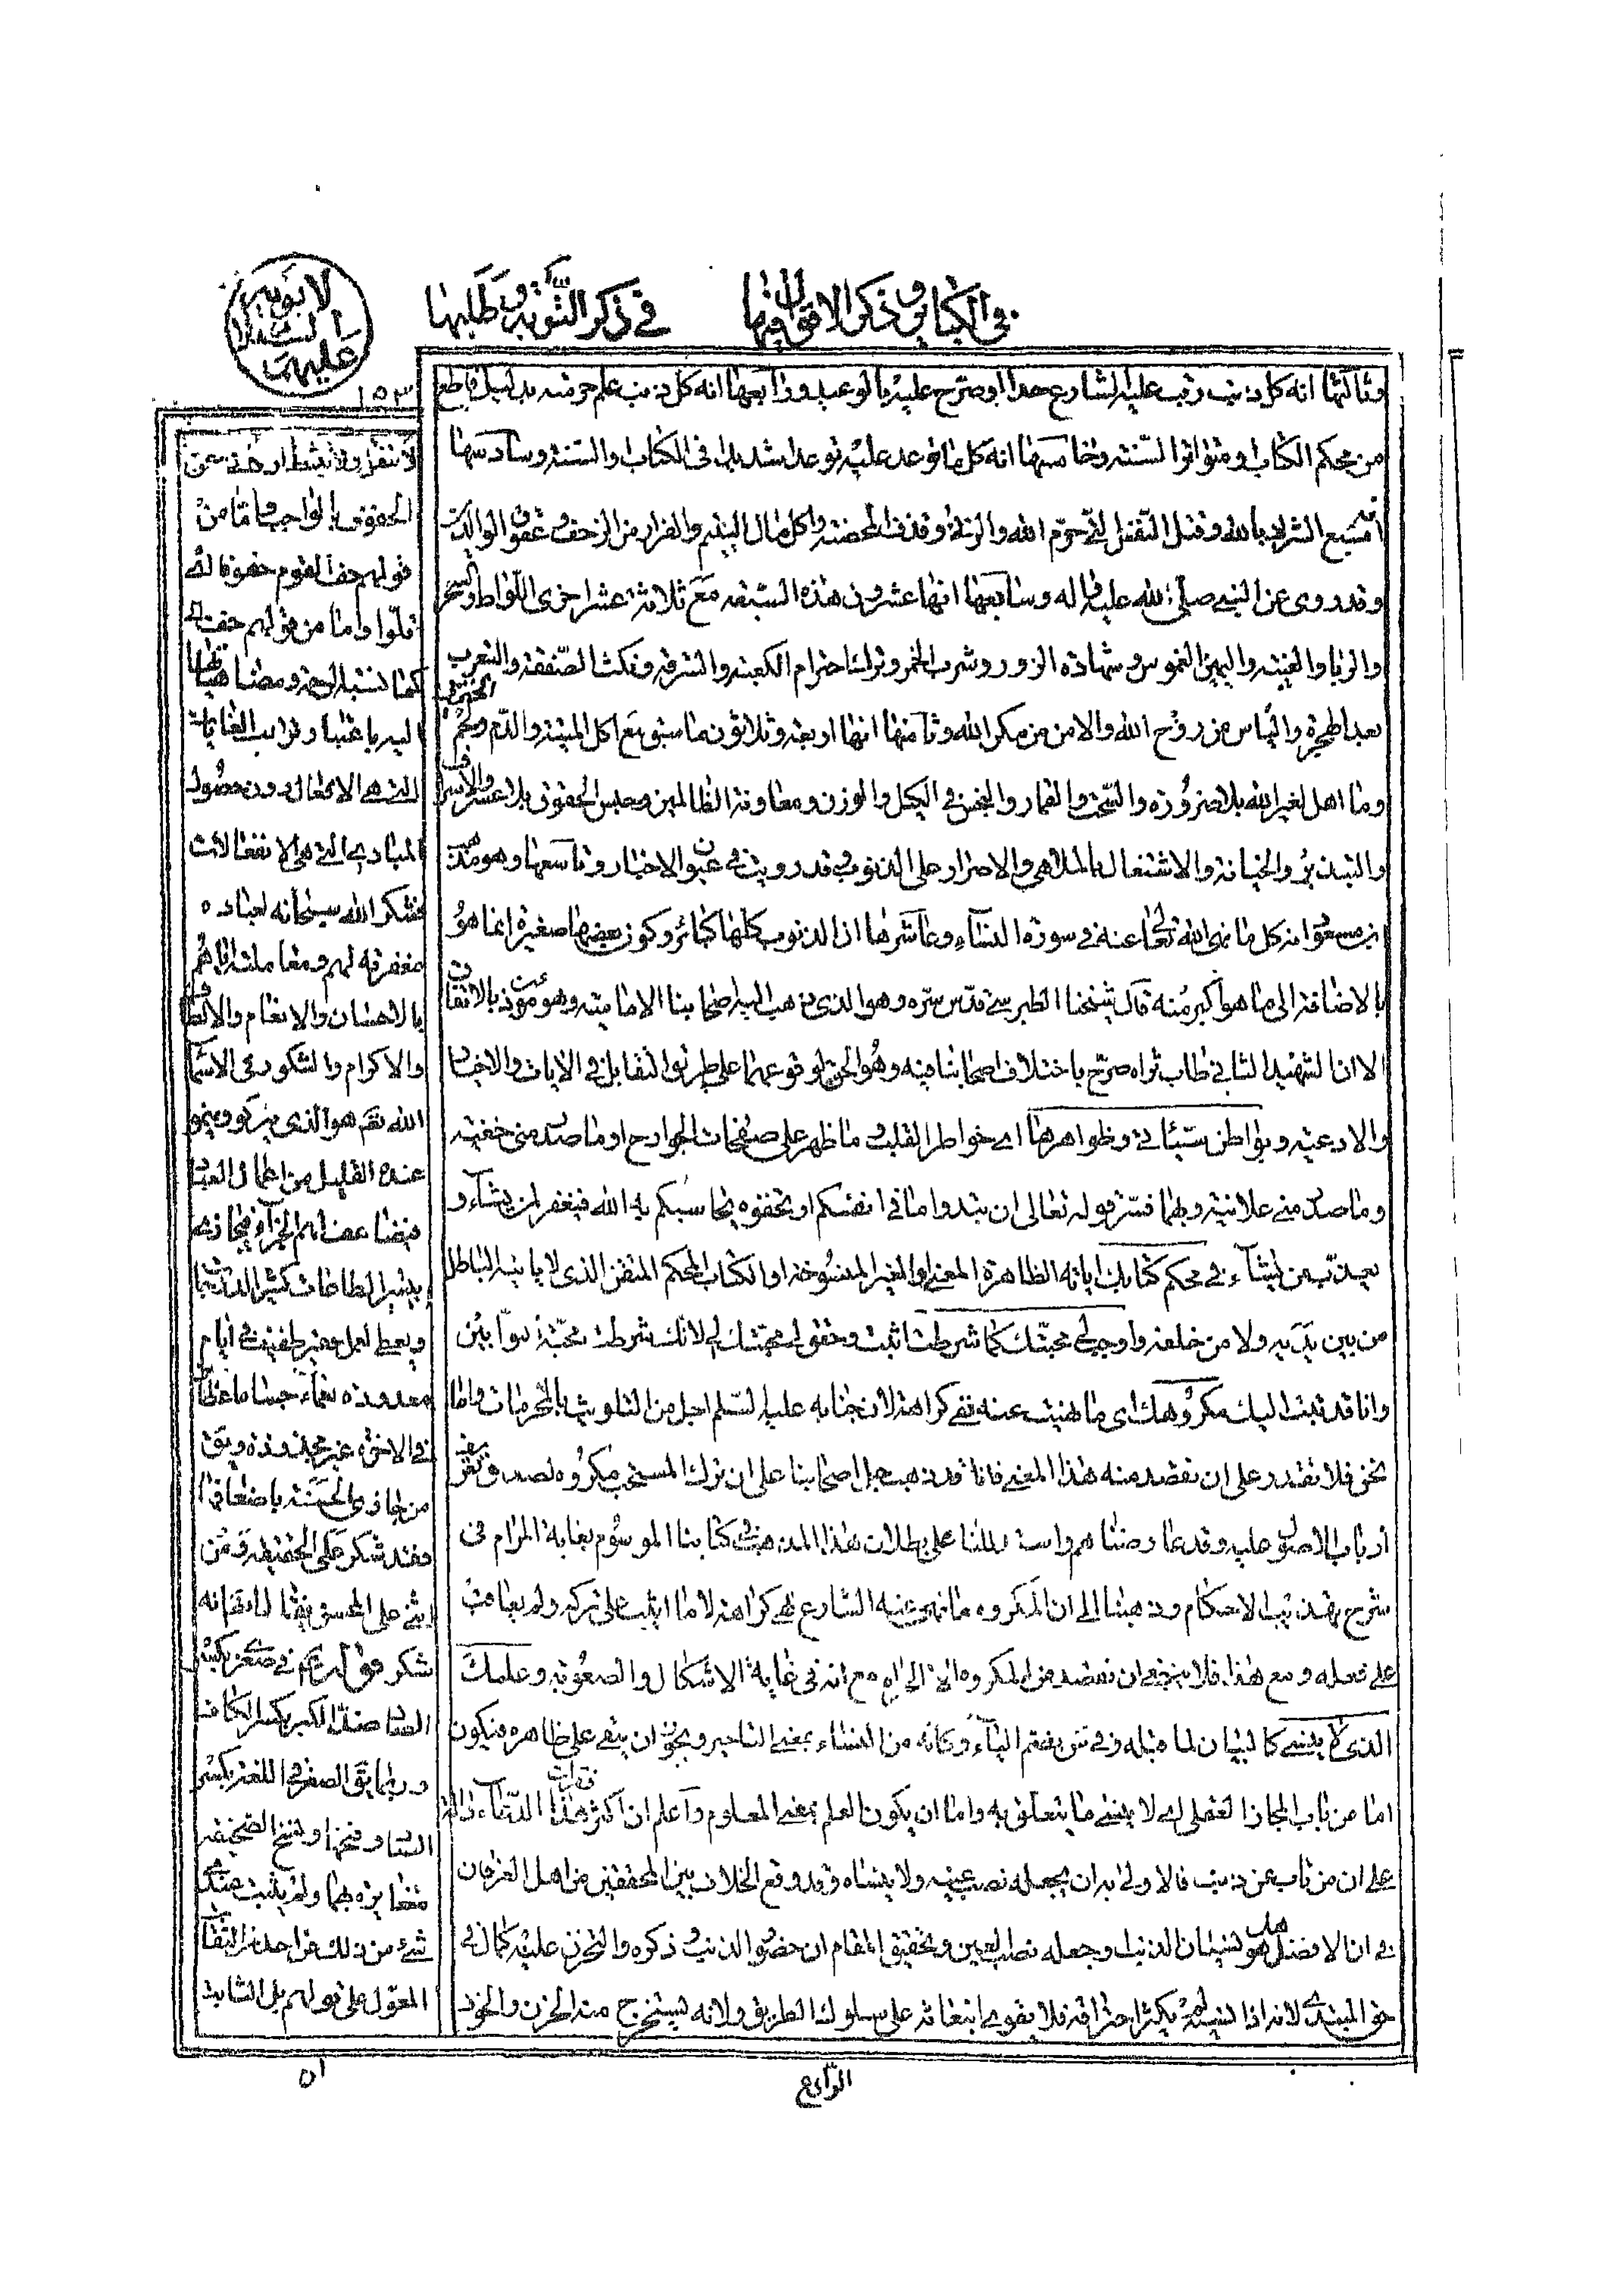 في الكبائر وذكر الاقوال فيها
في ذكر التوبة وطلبها
لابويه
السلام
عليهما
١٥٣
وثالثها انه كل ذنب رتب عليه الشارع حدا او صرح عليه بالوعيد ورابعها انه كل ذنب علم حرمته بدليل قاطع
من محكم الكتاب ومتواتر السنة وخامسها انه كل ما توعد عليه توعدا شديدا في الكتاب والسنة وسادسها
انه سبع الشرك بالله وقتل النفس التي حرم الله والزنا وقذف المحصنة واكل مال اليتيم والفرار من الزحف وعقوق الوالدين
وقد روى عن النبي صلى الله عليه واله وسابعها انها عشرون هذه السبعة مع ثلاثة عشر اخرى اللواط والسحر
والربا والغيبة واليمين الغموس وشهادة الزور وشرب الخمر وترك احترام الكعبة والسرقة ونكث الصفقة والتعرب
بعد الهجرة والياس من روح الله والامن من مكر الله وثامنها انها اربعة وثلاثون ما سبق مع اكل الميتة والدم ولحم الخنزير
وما اهل لغير الله بلا ضرورة والسحت والقمار والبخس في الكيل والوزن ومعاونة الظالمين وحبس الحقوق بلا عسر والاسراف
والتبذير والخيانة والاشتغال بالملاهي والاصرار على الذنوب وقد رويت في عيون الاخبار وتاسعها وهو مذهب
ابن مسعود انه كل ما نهى الله تعالى عنه في سورة النساء وعاشرها ان الذنوب كلها كبائر وكون بعضها صغيرة انما هو
بالاضافة الى ما هو اكبر منه قال شيخنا الطبرسي قدس سره وهو الذي ذهب اليه اصحابنا الامامية وهو موذن بالاتفاق
الا ان الشهيد الثاني طاب ثراه صرح باختلاف اصحابنا فيه وهو الحق لوقوعهما على طريق التقابل في الايات والاخبار
والادعية وبواطن سيئاتي وظواهرها اي خواطر القلب وما ظهر على صفحات الجوارح او ما صدر مني خفية
وما صدر مني علانية وبهما فسر قوله تعالى ان تبدوا ما في انفسكم او تخفوه يحاسبكم به الله فيغفر لمن يشاء و
يعذب من يشاء في محكم كتابك اياته الظاهرة المعنى او الغير المنسوخة او الكتاب المحكم المتقن الذي لا ياتيه الباطل
من بين يديه ولا من خلفه واوجب لي محبتك كما شرطت اثبت وحقق لي محبتك لي لانك شرطت محبة التوابين
وانا قد تبت اليك مكروهك اي ما نهيت عنه نهي كراهة لان جنابه عليه السلام اجل من التلويث بالمحرمات واما
نحن فلا نقتدر على ان نقصد منه هذا المعنى فانا قد ذهب جل اصحابنا على ان ترك المستحب مكروه لصدق تعريف
ارباب الاصول عليه وقد عارضناهم واستدللنا على بطلان هذا المذهب في كتابنا الموسوم بغاية المرام في
شرح تهذيب الاحكام وذهبنا الى ان المكروه ما نهى عنه الشارع نهي كراهة لا ما اثيب على تركه ولم يعاقب
على فعله ومع هذا فلا ينبغي ان نقصد من المكروه الا مع انه في غاية الاشكال والصعوبة وعلمك
الذي لا ينسى كالبيان لما قبله وفي بضم الياء وكانه من النساء بمعنى التاخير ويجوز ان يبقى على ظاهره فيكون
اما من باب المجاز العقلي اي لا ينسى ما يتعلق به واما ان يكون العلم بمعنى المعلوم واعلم ان اكثر فقرات هذا الدعاء دالة
على ان من تاب عن ذنب فالاولى به ان يجعله نصب عينيه ولا ينساه وقد وقع الخلاف بين المحققين من اهل العرفان
في ان الافضل هل هو نسيان الذنب او جعله نصب العين وتحقيق المقام ان حضور الذنب وذكره والتحزن عليه كمال في
حق المبتدي لانه اذا نسيه لم يكثر احتراقه فلا يقوى انبعاثه على سلوك الطريق ولانه يستخرج منه الحزن والخوف
الرادع
لا تنقل ولا
الحقوق الواجب واما من
قولهم حف القوم حفوفا اي
قلوا واما من قولهم حفت
كما نسبة الرحمة ومضاهياتها
اليه باعتبار ترتب الغايات
التي هي الافعال دون حصول
المبادي التي هي الانفعالات
فشكر الله سبحانه لعباده
مغفرته لهم ومعاملته اياهم
بالاحسان والانعام والالطاف
والاكرام والشكور في الاسماء
الله تعم هو الذي يزكو وينمو
عنده القليل من اعمال العباد
فيضاعف لهم الجزاء فيجازي
بيسير الطاعات كثير الدرجات
ويعطي لعمل طفيف في ايام
معدودة نعماء جساما عظاما
في الاخرة غير مجذوذة ويق
من جازى الحسنة باضعافها
فقد شكر على الحقيقة ومن
اثنى على المحسن يقال له انه
شكر قوله في صغر بكسر
الصاد ضد الكبر بكسر الكاف
وربما يق الصغر في اللغة بكسر
شيء من ذلك عن احد من الثقات
المعول على قولهم بل الثابت
ان